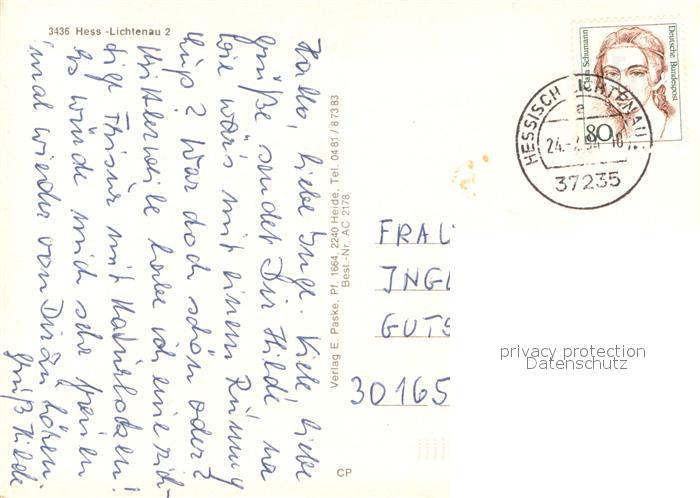 3436 Hess -Lichtenau 2
Hallo, liebe Inge. Viele, liebe
Grüße sendet Dir Hilde. Na
wie wär's mit einem
? War doch schön oder?
Mittlerweile habe ich eine rich-
dige Frisur mit Naturlocken!
Es würde mich sehr freuen
mal wieder von Dir zu hören.
Gruß Hilde
Verlag E. Paske, Pf. 1664, 2240 Heide, Tel. 0481 / 873 83
Best.-Nr. AC 2178
CP
Deutsche Bundespost
Clara Schumann
80
HESSISCH LICHTENAU
a
24.-2.94-18
37235
FRAU
INGE
GUTS
30165
privacy protection
Datenschutz